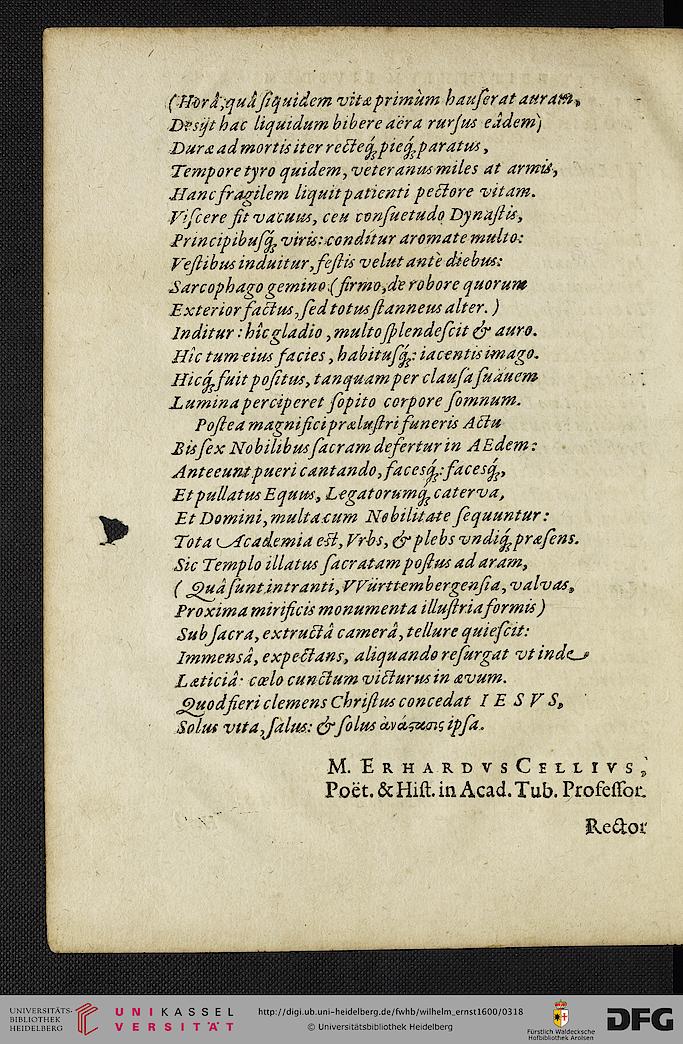 (Horâ, quâ ſiquidem vitæ primùm hauſerat auram,
Deſijt hac liquidum bibere aëra rurſus eâdem)
Duræ ad mortis iter recteq́; pieq́; paratus,
Tempore tyro quidem, veteranus miles at armis,
Hanc fragilem liquit patienti pectore vitam.
Viſcere fit vacuus, ceu conſuetudo Dynaſtis,
Principibuſq́; viris: conditur aromate multo:
Veſtibus induitur, feſtis velut antè diebus:
Sarcophago gemino (firmo, de robore quorum
Exterior factus, ſed totus ſtanneus alter.)
Inditur: hîc gladio, multo ſplendeſcit & auro.
Hîc tum eius facies, habituſq́;: iacentis imago.
Hicq́; fuit poſitus, tanquam per clauſa ſuăuem
Lumina perciperet ſopito corpore ſomnum.
Poſtea magnifici præluſtri funeris Actu
Bis ſex Nobilibus ſacram defertur in AEdem:
Anteeunt pueri cantando, facesq́;: facesq́;,
Et pullatus Equus, Legatorumq́; caterva,
Et Domini, multa cum Nobilitate ſequuntur:
Tota Academia eſt, Vrbs, & plebs vndiq́; præſens.
Sic Templo illatus ſacratam poſtus ad aram,
(Quâ ſunt intranti, VVürttembergenſia, valvas,
Proxima mirificis monumenta illuſtria formis)
Sub ſacra, extructâ camerâ, tellure quieſcit:
Immensâ, expectans, aliquando reſurgat vt inde
Læticiâ: cælo cunctum victurus in ævum.
Quod fieri clemens Chriſtus concedat IESVS,
Solus vita, ſalus: & ſolus ἀνάςασις ipſa.
M. ERHARDVS CELLIVS,
Poët. & Hiſt. in Acad. Tub. Profeſſor.
Rector
UNIVERSITÄTS-
BIBLIOTHEK
HEIDELBERG
UNIKASSEL
VERSITÄT
http://digi.ub.uni-heidelberg.de/fwhb/wilhelm_ernst1600/0318
© Universitätsbibliothek Heidelberg
Fürstlich Waldecksche
Hofbibliothek Arolsen
DFG